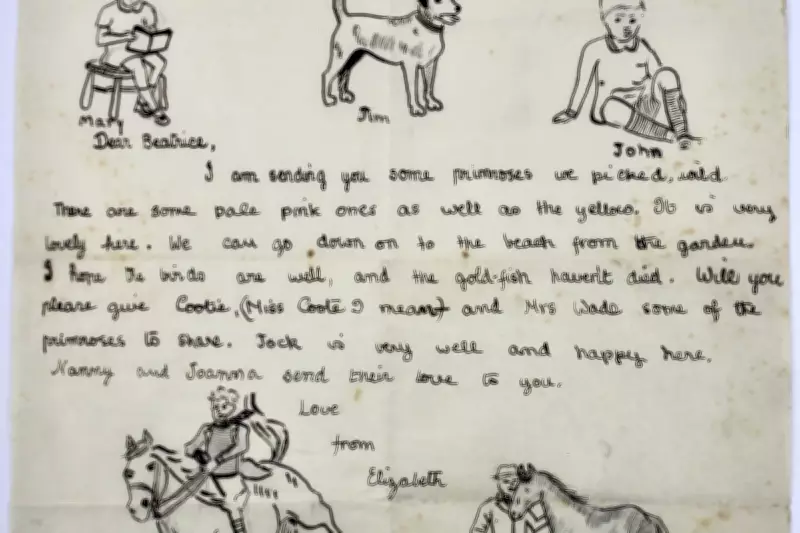 Mary
Jim
John
Dear Beatrice,
I am sending you some primroses we picked, wild
There are some pale pink ones as well as the yellow. It is very
lovely here. We can go down on to the beach from the garden.
I hope Te birds are well, and the gold-fish haven't died. Will you
please give Cootie, (Miss Coote I mean) and Mrs Wade some of the
primroses to share. Jock is very well and happy here.
Nanny and Joanna send their love to you.
Love
from
Elizabeth